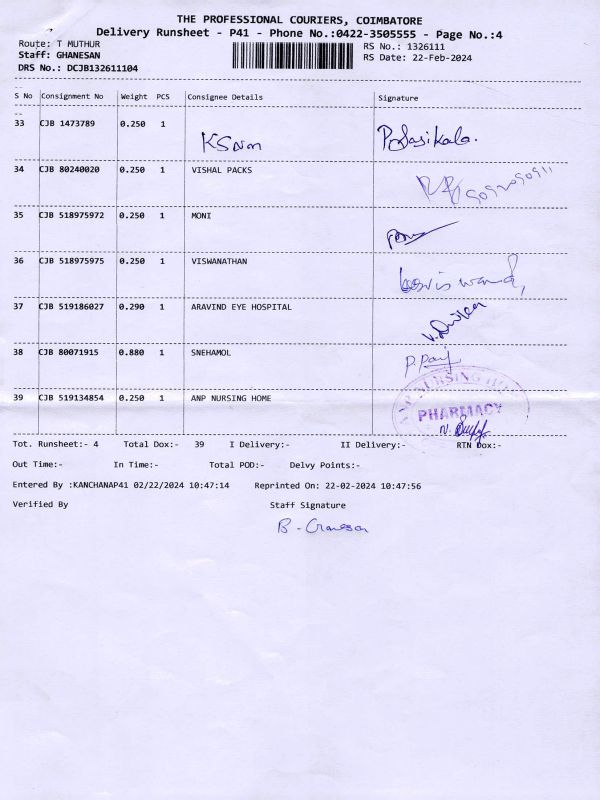 THE PROFESSIONAL COURIERS, COIMBATORE
Delivery Runsheet - P41 - Phone No.:0422-3505555 - Page No.:4
Route: T MUTHUR
RS No.: 1326111
Staff: GHANESAN
RS Date: 22-Feb-2024
DRS No.: DCJB132611104
S No Consignment No Weight PCS Consignee Details Signature
33 CJB 1473789 0.250 1 KSNM P. Sasikala.
34 CJB 80240020 0.250 1 VISHAL PACKS
35 CJB 518975972 0.250 1 MONI
36 CJB 518975975 0.250 1 VISWANATHAN
37 CJB 519186027 0.290 1 ARAVIND EYE HOSPITAL
38 CJB 80071915 0.880 1 SNEHAMOL
39 CJB 519134854 0.250 1 ANP NURSING HOME
ANP NURSING
PHARMACY
Tot. Runsheet:- 4 Total Dox:- 39 I Delivery:- II Delivery:- RTN Dox:-
Out Time:- In Time:- Total POD:- Delvy Points:-
Entered By :KANCHANAP41 02/22/2024 10:47:14 Reprinted On: 22-02-2024 10:47:56
Verified By Staff Signature
B - Ganesan